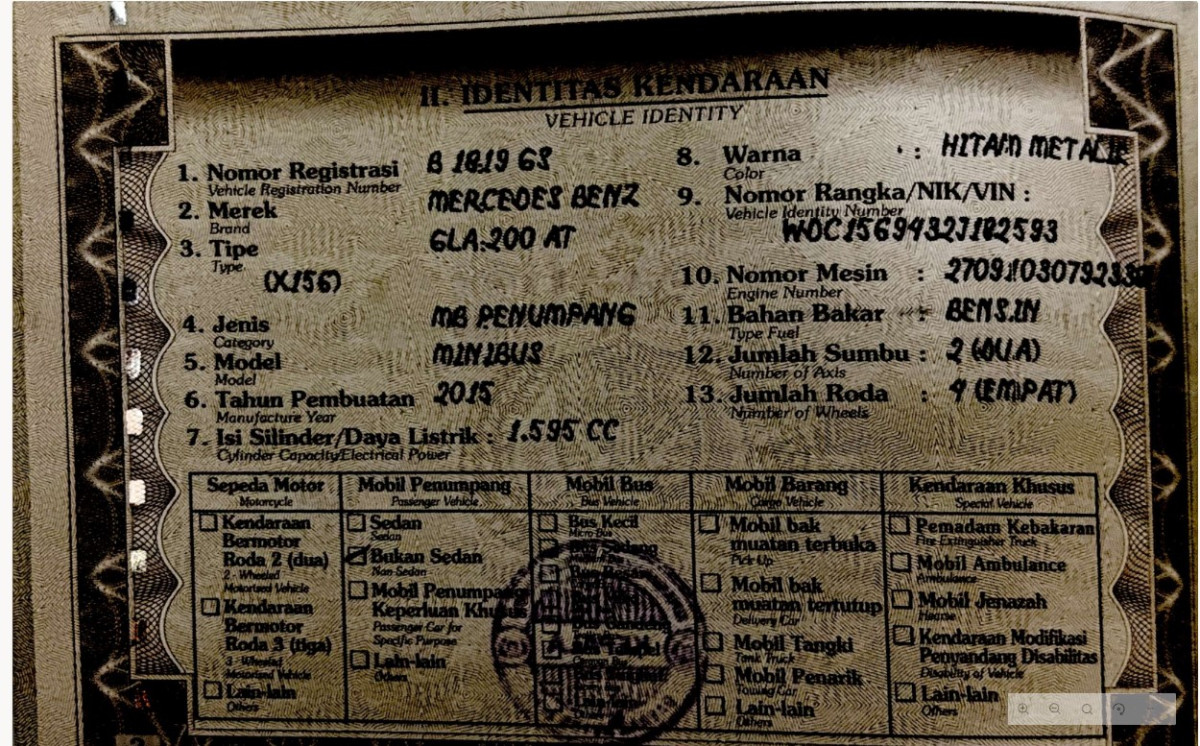 II. IDENTITAS KENDARAAN
VEHICLE IDENTITY
1. Nomor Registrasi B 1819 GS
Vehicle Registration Number
2. Merek MERCEDES BENZ
Brand
3. Tipe GLA.200 AT
Type
(X156)
4. Jenis MB PENUMPANG
Category
5. Model MINIBUS
Model
6. Tahun Pembuatan 2015
Manufacture Year
7. Isi Silinder/Daya Listrik : 1.595 CC
Cylinder Capacity/Electrical Power
8. Warna : HITAM METALIK
Color
9. Nomor Rangka/NIK/VIN :
Vehicle Identity Number
WDC1569432J182593
10. Nomor Mesin :
Engine Number
11. Bahan Bakar : BENSIN
Type Fuel
12. Jumlah Sumbu : 2 (DUA)
Number of Axis
13. Jumlah Roda : 4 (EMPAT)
Number of Wheels
Sepeda Motor
Motorcycle
Kendaraan
Bermotor
Roda 2 (dua)
2 - Wheeled
Motorized Vehicle
Kendaraan
Bermotor
Roda 3 (tiga)
3 - Wheeled
Motorized Vehicle
Lain-lain
Others
Mobil Penumpang
Passenger Vehicle
Sedan
Sedan
Bukan Sedan
Non Sedan
Mobil Penumpang
Keperluan Khusus
Passenger Car for
Specific Purpose
Lain-lain
Others
Mobil Bus
Bus Vehicle
Bus Kecil
Micro Bus
Mobil Barang
Cargo Vehicle
Mobil bak
muatan terbuka
Pick Up
Mobil bak
muatan tertutup
Delivery Car
Mobil Tangki
Tank Truck
Mobil Penarik
Towing Car
Lain-lain
Others
Kendaraan Khusus
Special Vehicle
Pemadam Kebakaran
Fire Extinguisher Truck
Mobil Ambulance
Ambulance
Mobil Jenazah
Hearse
Kendaraan Modifikasi
Penyandang Disabilitas
Disability of Vehicle
Lain-lain
Others